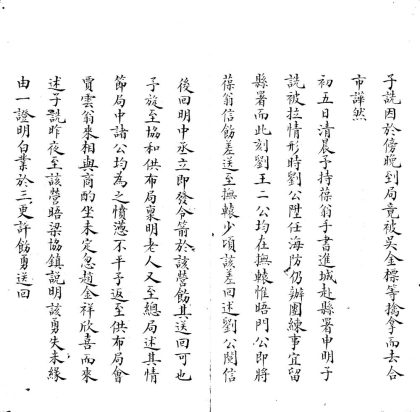 子説因於傍晚到局竟被吳金標等擒拿而去合
市譁然
初五日清晨予持葆翁手書進城赴縣署申明子
説被拉情形時劉公陞任海防仍辦團練事宜留
縣署而此刻劉王二公均在撫轅惟晤門公即將
葆翁信飭差送至撫轅少頃該差回述劉公閱信
後回明中丞立即發令箭於該營飭其送回可也
予旋至協和供布局稟明老人又至總局述其情
節局中諸公均為之憤懣不平予返至供布局會
賈雲翁來相與商酌坐未定忽趙金祥欣喜而來
述子説昨夜至該營晤梁協鎮説明該勇失末緣
由一證明白業於三更許飭勇送回